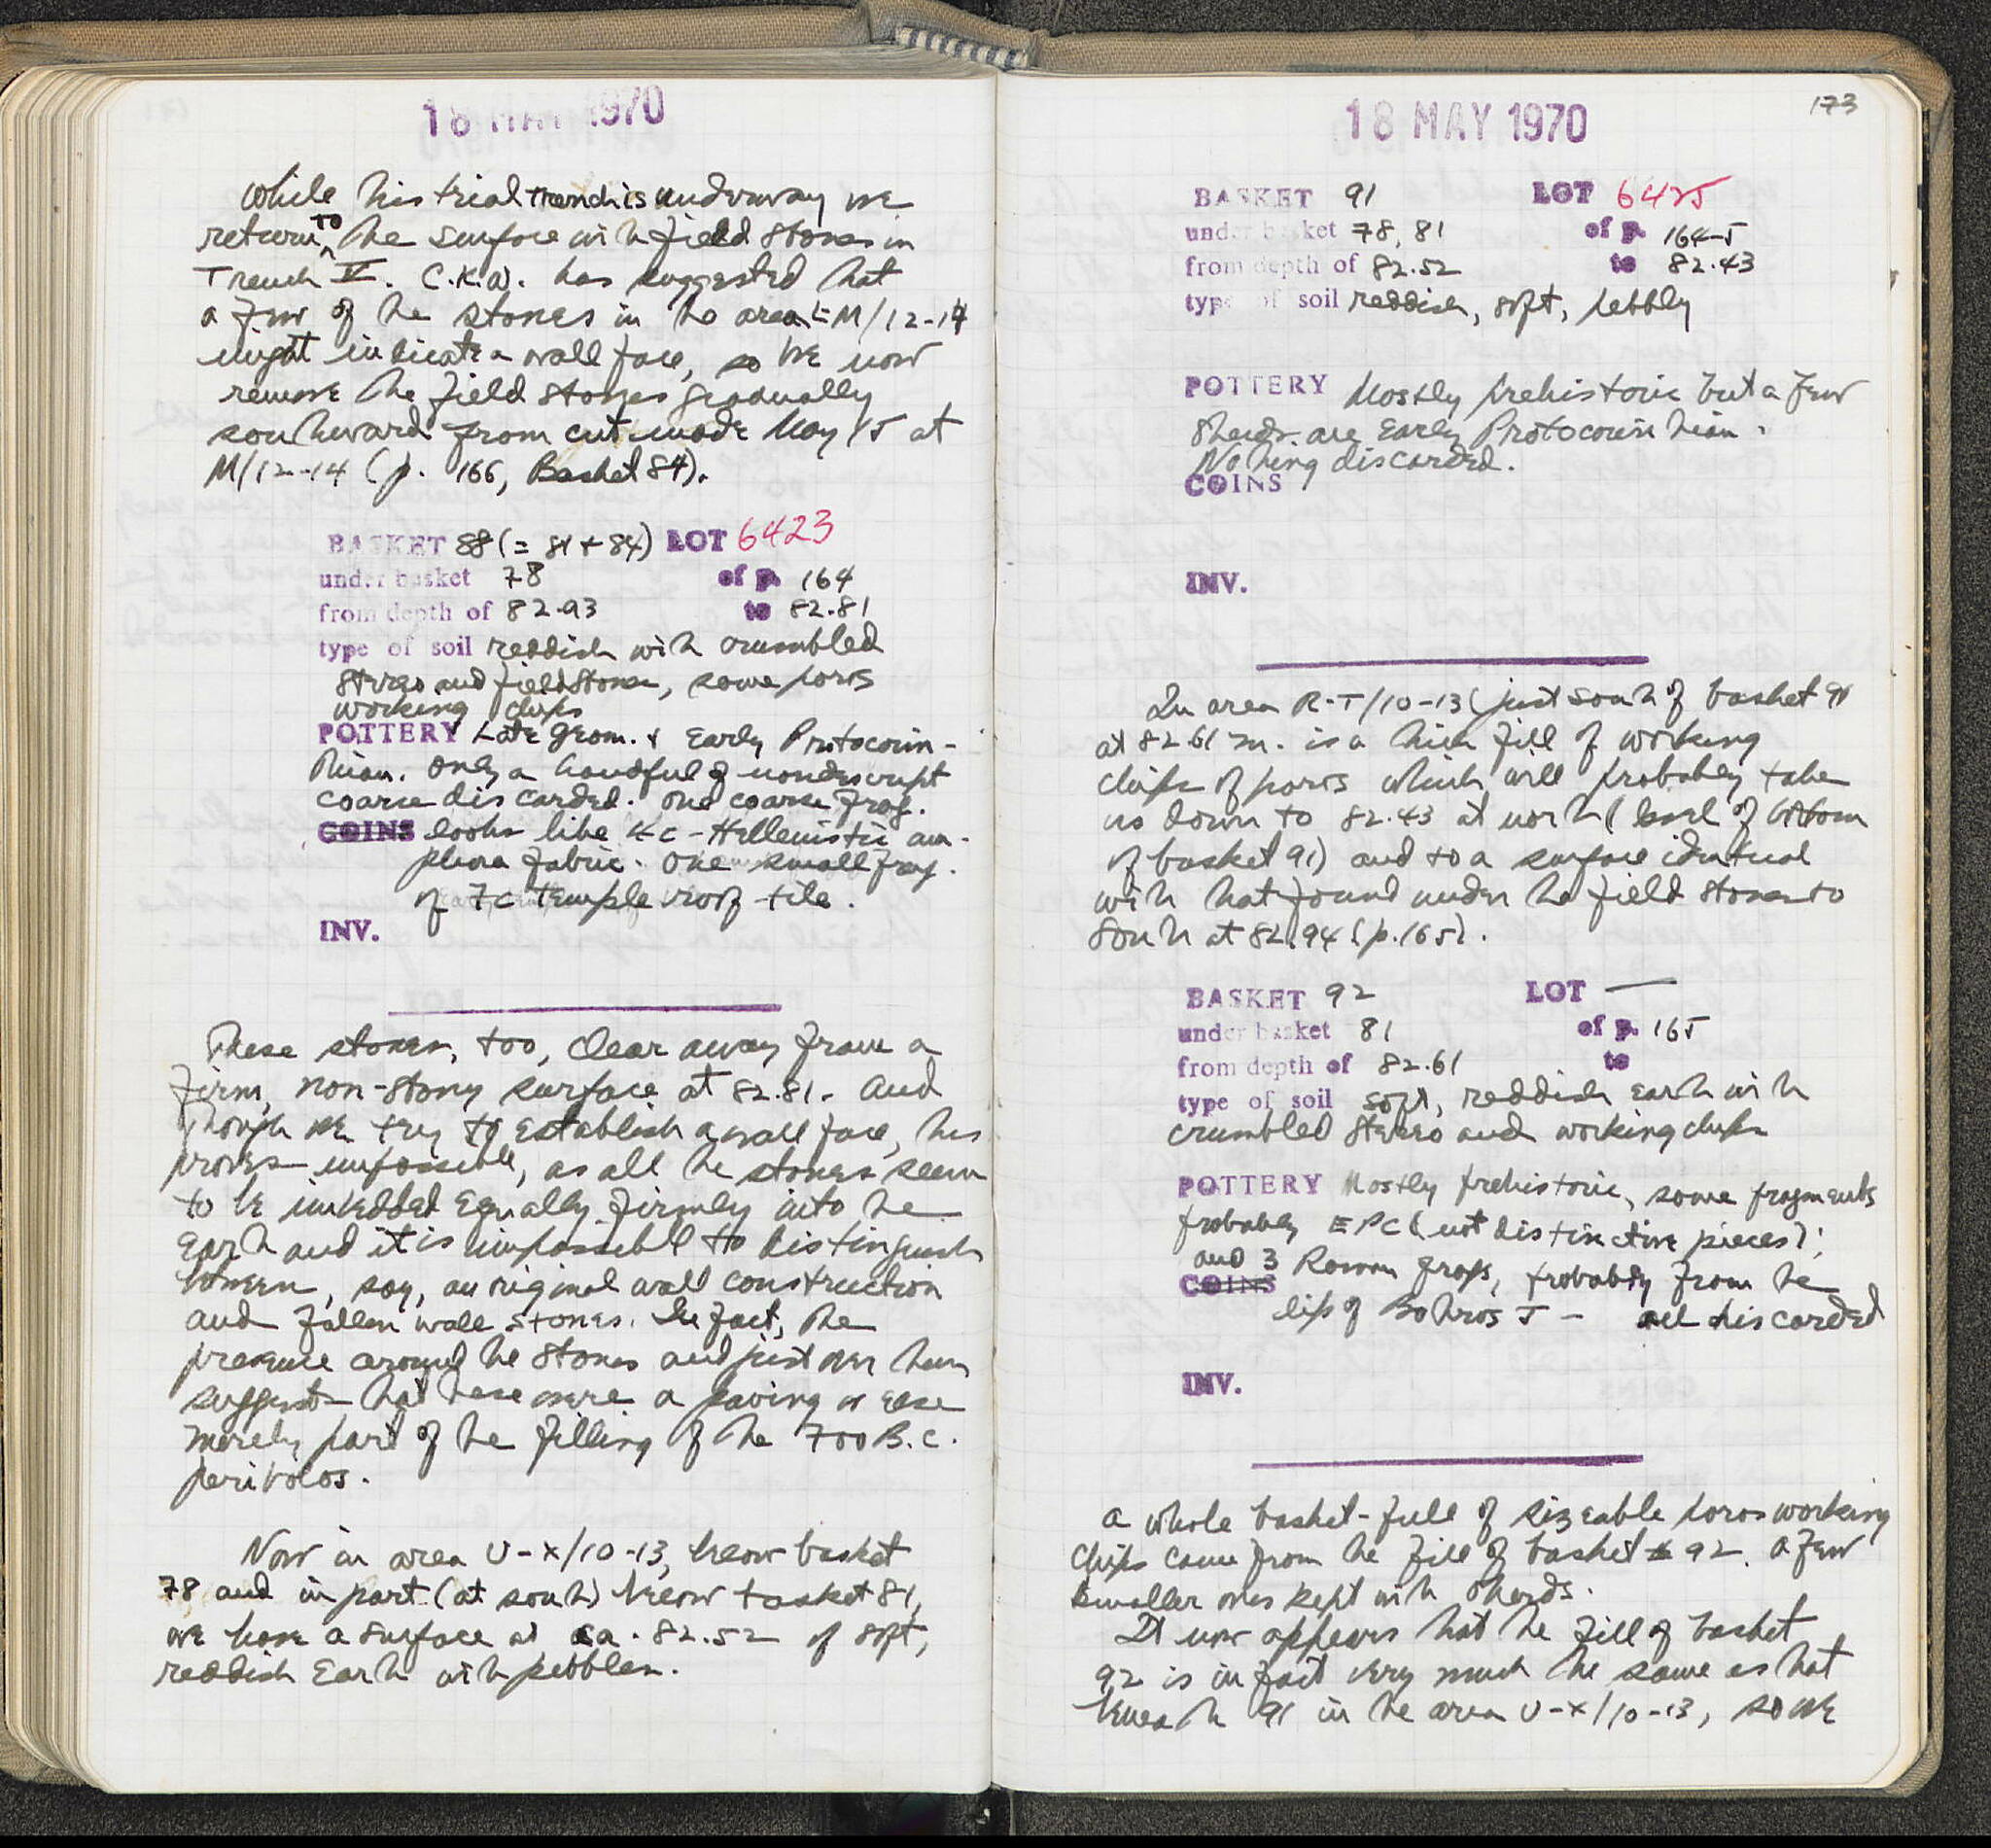 18 MAY 1970
While this trial trench is underway we
return TO the surface with field stones in
Trench V. C.K.W. has suggested that
a few of the stones in the area L-M/12-14
might indicate a wall face, so we now
remove the field stones gradually
southward from cut made May 15 at
M/12-14 (p. 166, Basket 84).
BASKET 88 (= 81 + 84) LOT 6423
under basket 78 of p. 164
from depth of 82.93 to 82.81
type of soil reddish with crumbled
stereo and field stones, some poros
working chips
POTTERY Late Geom. & Early Protocorin-
thian. Only a handful of nondescript
coarse discarded. One coarse frag.
COINS looks like 4c-Hellenistic am-
phora fabric. One small frag.
of 7c temple roof tile.
INV.
These stones, too, clear away from a
firm, non-stony surface at 82.81. And
though we try to establish a wall face, this
proves impossible, as all the stones seem
to be imbedded equally firmly into the
earth and it is impossible to distinguish
between, say, an original wall construction
and fallen wall stones. In fact, the
presence around the stones and just over them
suggests that these were a paving or else
merely part of the filling of the 700 B.C.
peribolos.
Now in area U-X/10-13, below basket
78 and in part (at south) below basket 81,
we have a surface at ca. 82.52 of soft,
reddish earth with pebbles.
173
18 MAY 1970
BASKET 91 LOT 6425
under basket 78, 81 of p. 164-5
from depth of 82.52 to 82.43
type of soil reddish, soft, pebbly
POTTERY Mostly prehistoric but a few
sherds are Early Protocorinthian.
Nothing discarded.
COINS
INV.
In area R-T/10-13 (just south of basket 91
at 82.61 m. is a thick fill of working
chips of poros which will probably take
us down to 82.43 at north (level of bottom
of basket 91) and to a surface identical
with that found under the field stones to
south at 82.94 (p. 165).
BASKET 92 LOT —
under basket 81 of p. 165
from depth of 82.61 to
type of soil soft, reddish earth with
crumbled stereo and working chips
POTTERY Mostly prehistoric, some fragments
probably EPC (not distinctive pieces);
and 3 Roman frags, probably from the
COINS
lips of Bothros J - all discarded
INV.
A whole basket-full of sizeable poros working
chips came from the fill of basket 92. A few
smaller ones kept with sherds.
It now appears that the fill of basket
92 is in fact very much the same as that
beneath 91 in the area U-X/10-13, so we